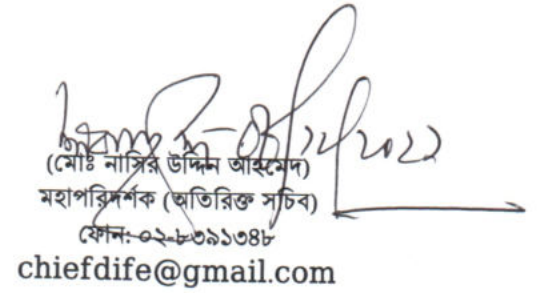 ০৫/১২/২০২২
(মোঃ নাসির উদ্দিন আহমেদ)
মহাপরিদর্শক (অতিরিক্ত সচিব)
ফোন: ০২-৮৩৯১৩৪৮
chiefdife@gmail.com